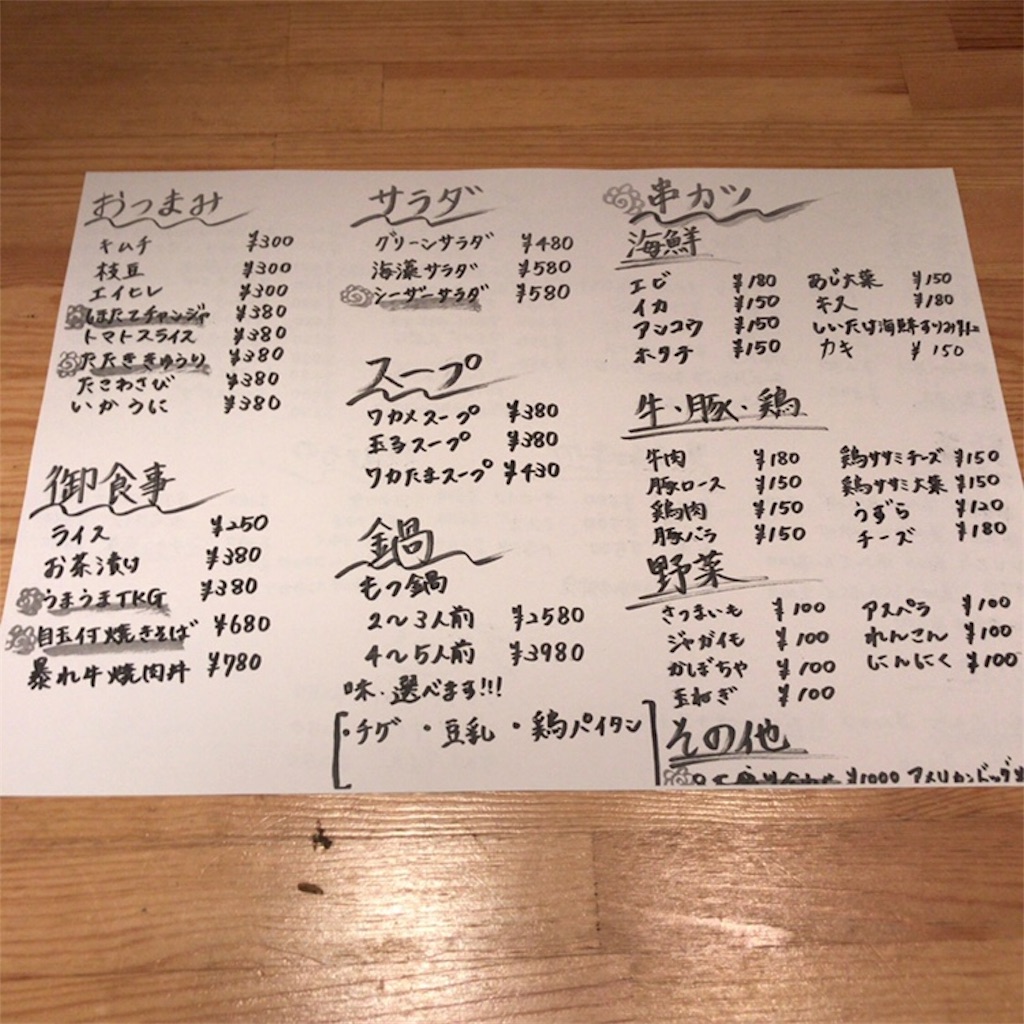 おつまみ
キムチ ¥300
枝豆 ¥300
エイヒレ ¥300
ほたてチャンジャ ¥380
トマトスライス ¥380
たたききゅうり ¥380
たこわさび ¥380
いかうに ¥380
御食事
ライス ¥250
お茶漬け ¥380
うまうまTKG ¥380
目玉付焼きそば ¥680
暴れ牛焼肉丼 ¥780
サラダ
グリーンサラダ ¥480
海藻サラダ ¥580
シーザーサラダ ¥580
スープ
ワカメスープ ¥380
玉子スープ ¥380
ワカたまスープ ¥430
鍋
もつ鍋
2〜3人前 ¥2580
4〜5人前 ¥3980
味、選べます!!!
・チゲ ・豆乳 ・鶏パイタン
串カツ
海鮮
エビ ¥180 あじ大葉 ¥150
イカ ¥150 キス ¥180
アンコウ ¥150 しいたけ海鮮すりみ
ホタテ ¥150 カキ ¥150
牛・豚・鶏
牛肉 ¥180 鶏ササミチーズ ¥150
豚ロース ¥150 鶏ササミ大葉 ¥150
鶏肉 ¥150 うずら ¥120
豚バラ ¥150 チーズ ¥180
野菜
さつまいも ¥100 アスパラ ¥100
ジャガイモ ¥100 れんこん ¥100
かぼちゃ ¥100 にんにく ¥100
玉ねぎ ¥100
その他
¥1000 アメリカンドッグ